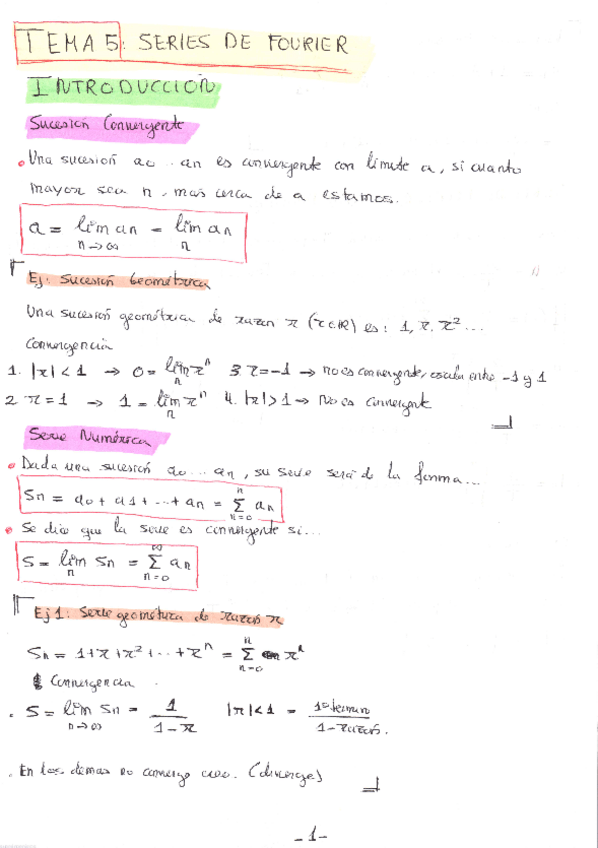 TEMA 5: SERIES DE FOURIER
INTRODUCCIÓN
Sucesión Convergente
Una sucesión a0 ... an es convergente con límite a, si cuanto
mayor sea n, mas cerca de a estamos.
a = lim an = lim an
n→∞ n
Ej: Sucesión Geométrica
Una sucesión geométrica de razón r (r∈ℝ) es: 1, r, r²...
Convergencia
1. |r| < 1 → 0 = lim rⁿ 3 r = -1 → no es convergente, oscila entre -1 y 1
n
2 r = 1 → 1 = lim rⁿ 4. |r| > 1 → No es convergente
n
Serie Numérica
Dada una sucesión a0 ... an, su serie será de la forma...
Sn = a0 + a1 + ... + an = Σ an
n
n=0
Se dice que la serie es convergente si...
S = lim Sn = Σ an
n
∞
n=0
Ej 1: Serie geométrica de razón r
Sn = 1 + r + r² + ... + rⁿ = Σ rⁿ
n
n=0
Convergencia
. S = lim Sn = 1 / (1 - r) |r| < 1 = 1º termino / 1 - razón.
n→∞
. En los demas no converge (diverge)
- 1 -